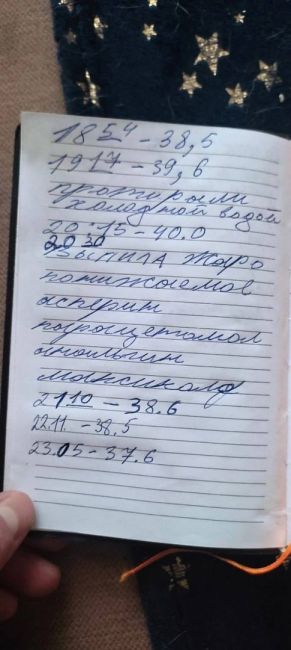 18 54 - 38,5
19 17 - 39,6
протирали
холодной водой
20:15 - 40.0
20 30
выпила жаро
понижаемое
асперин
парацетамол
анальгин
максиколд
21 10 - 38.6
22.11 - 38.5
23.05 - 37.6